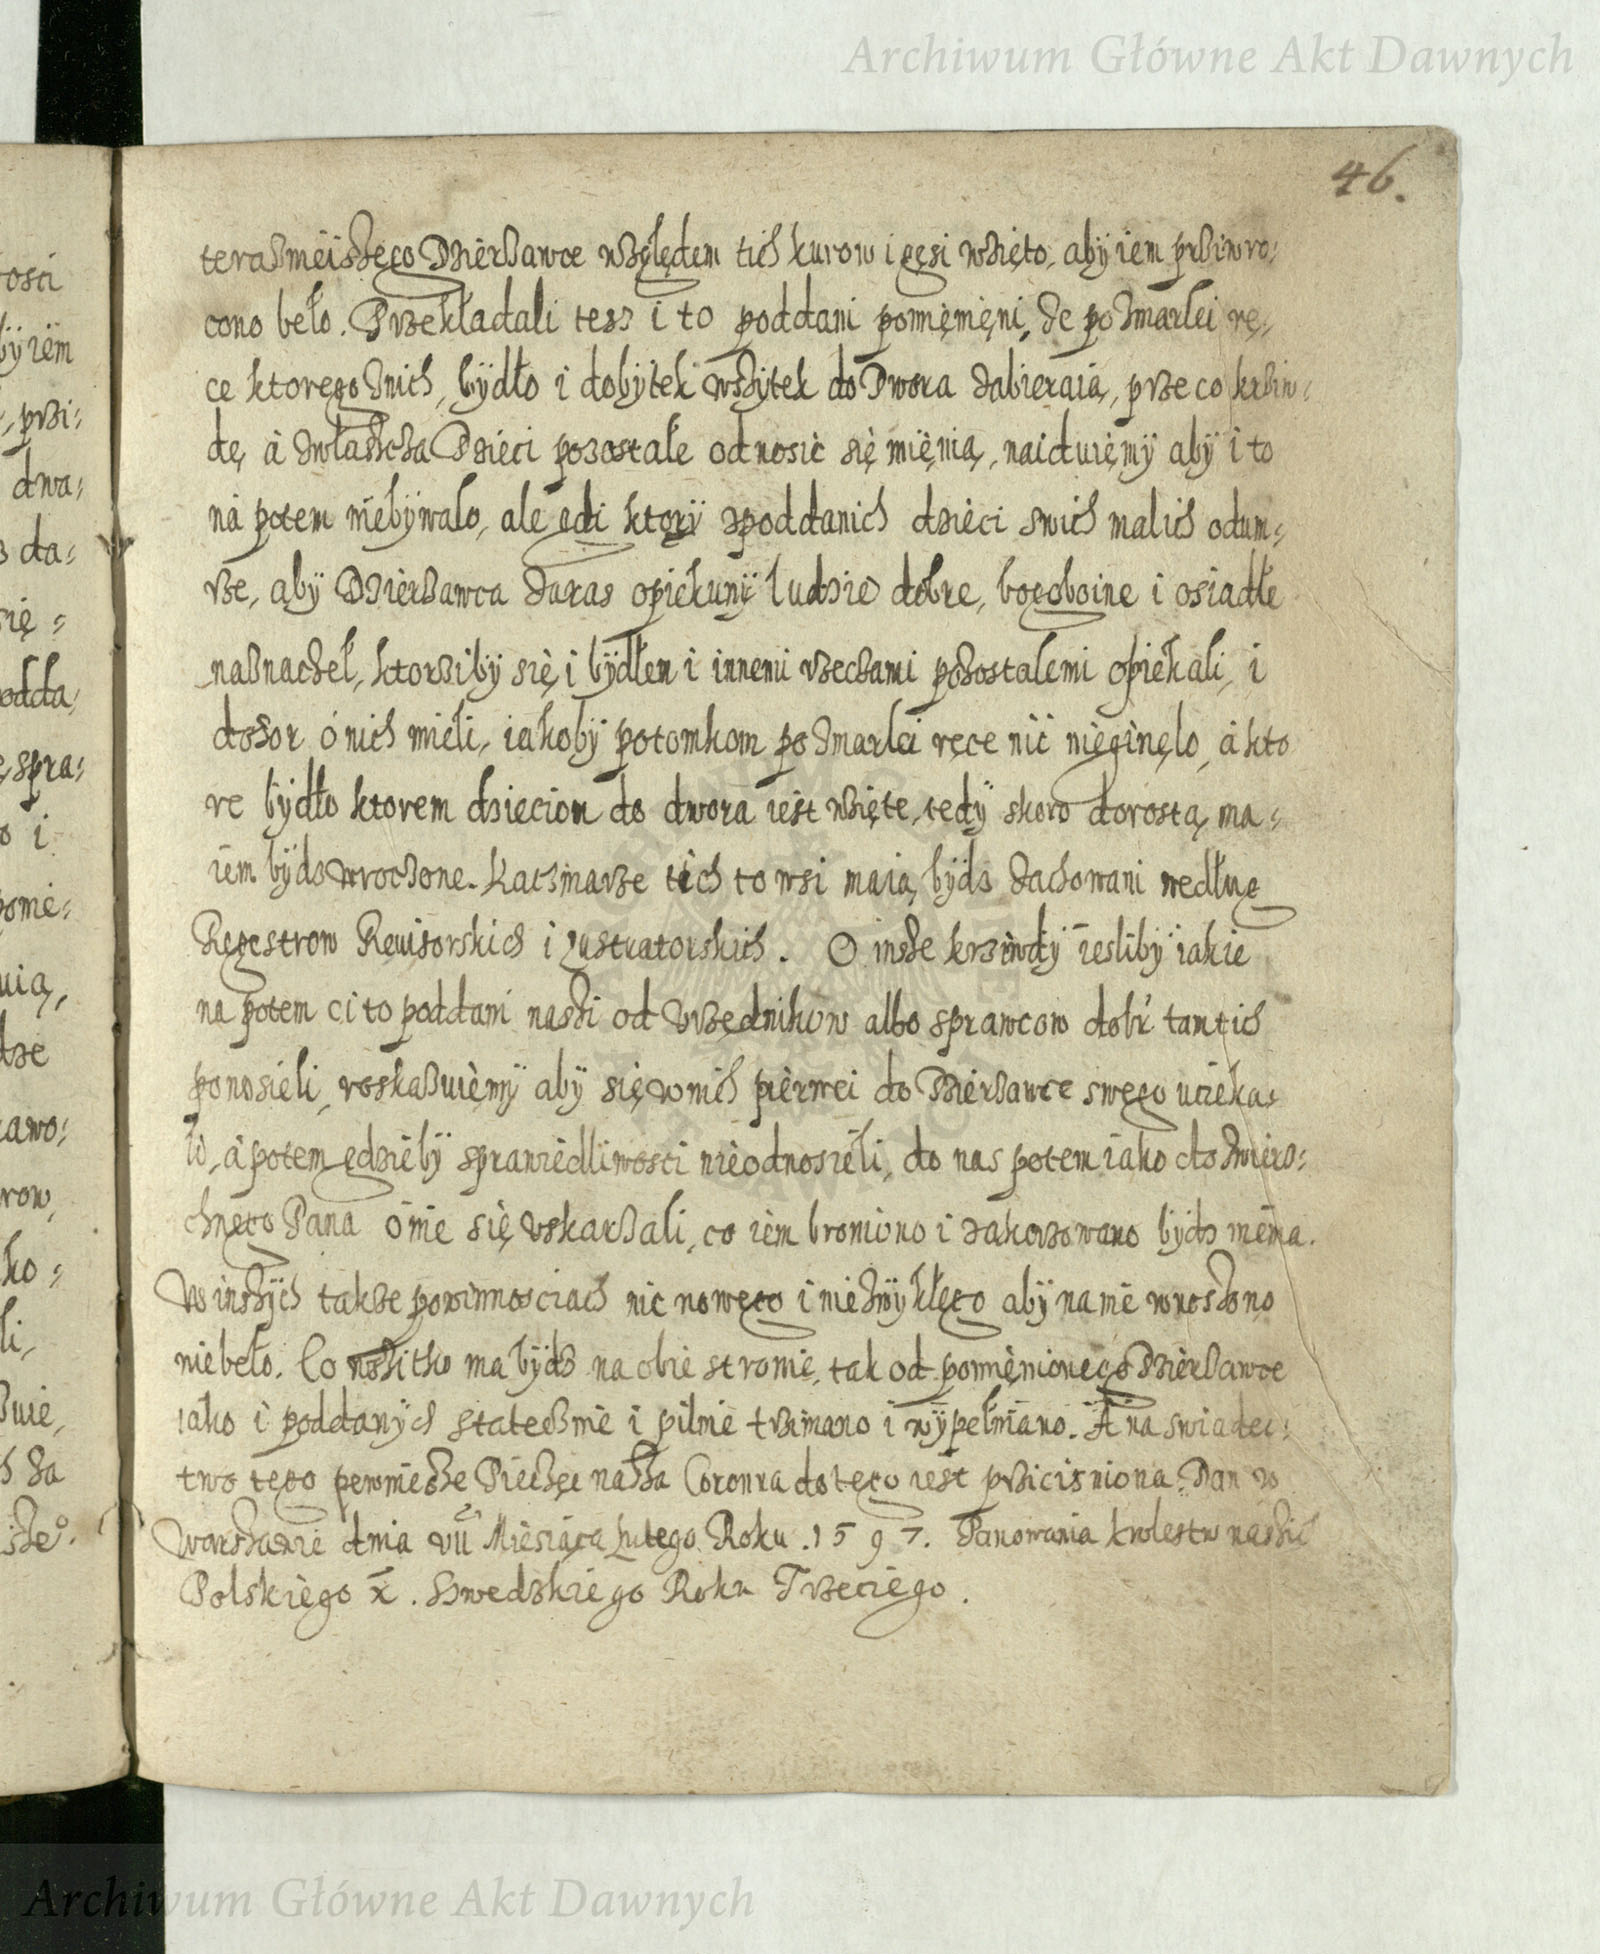 Archiwum Główne Akt Dawnych
46.
teraßmeiszego Dzierßawce wzgłędem tich kurow i gęsi wzięto, aby iem przÿwro:
cono beło. Przekładali tesz i to poddani pomięmęni, że po zmarłei rę:
ce ktorego znich, bÿdło i dobÿtek wszÿtek do Dwora zabieraią, prze co krziw:
dę à zwłaszcza Dzieci pozostałe odnosić się mięnią, naiduięmÿ abÿ i to
nà potem niebÿwało, ale gdi ktorÿ zpoddanich dzieci swich malich odum:
rze, abÿ Dzierßawca zaras opiekunÿ ludzie dobre, bogoboine i osiadłe
naßnacżeł, ktorzibÿ się i bÿdłem i innemi rzecżami pozostalemi opiekali, i
dozor o nich mieli, iakobÿ potomkom po zmarlei ręce nic niegineło, à kto
re bÿdło ktorem dzieciom do dwora iest wzięte, tedÿ skoro dorostą, ma:
iem bÿdz wrocżone. Kacżmarze tich to wsi maią bÿdz zachowani według
Regestrow Reuisorskich i Lustratorskich. O insze krziwdÿ ieslibÿ iakie
na potem ci to poddani naszi od Vrzędnikow albo sprawcow dobr tamtich
ponosieli, roskaßuięmÿ abÿ się o nich pierwei do Dzierßawce swego uciekа:
li, à potem gdziebÿ sprawiedliwosci nieodnosieli, do nas potem iako do zwierz:
chnego Pana o nie się vskarßali, co iem bronio̊no i zakazowano bÿdz niema.
W inszÿch takze powinnosciach nic nowego i niezwÿkłego abÿ na nie wnoszono
niebeło. Co wszitko ma bÿdz na obie stronie, tak od pomięnionego Dzierßawce
iako i poddanÿch statecżnie i pilnie trzimano i wÿpełniano. A na swiadec:
two tego pewniesze Piecżęc nasza Coronna do tego iest przicisniona. Dan w
Warszawie dnia VII Miesiąca Lutego Roku .1597. Panowania krolestw naszich
Polskiego X. Szwedzkiego Roku Trzeciego.
Archiwum Główne Akt Dawnych